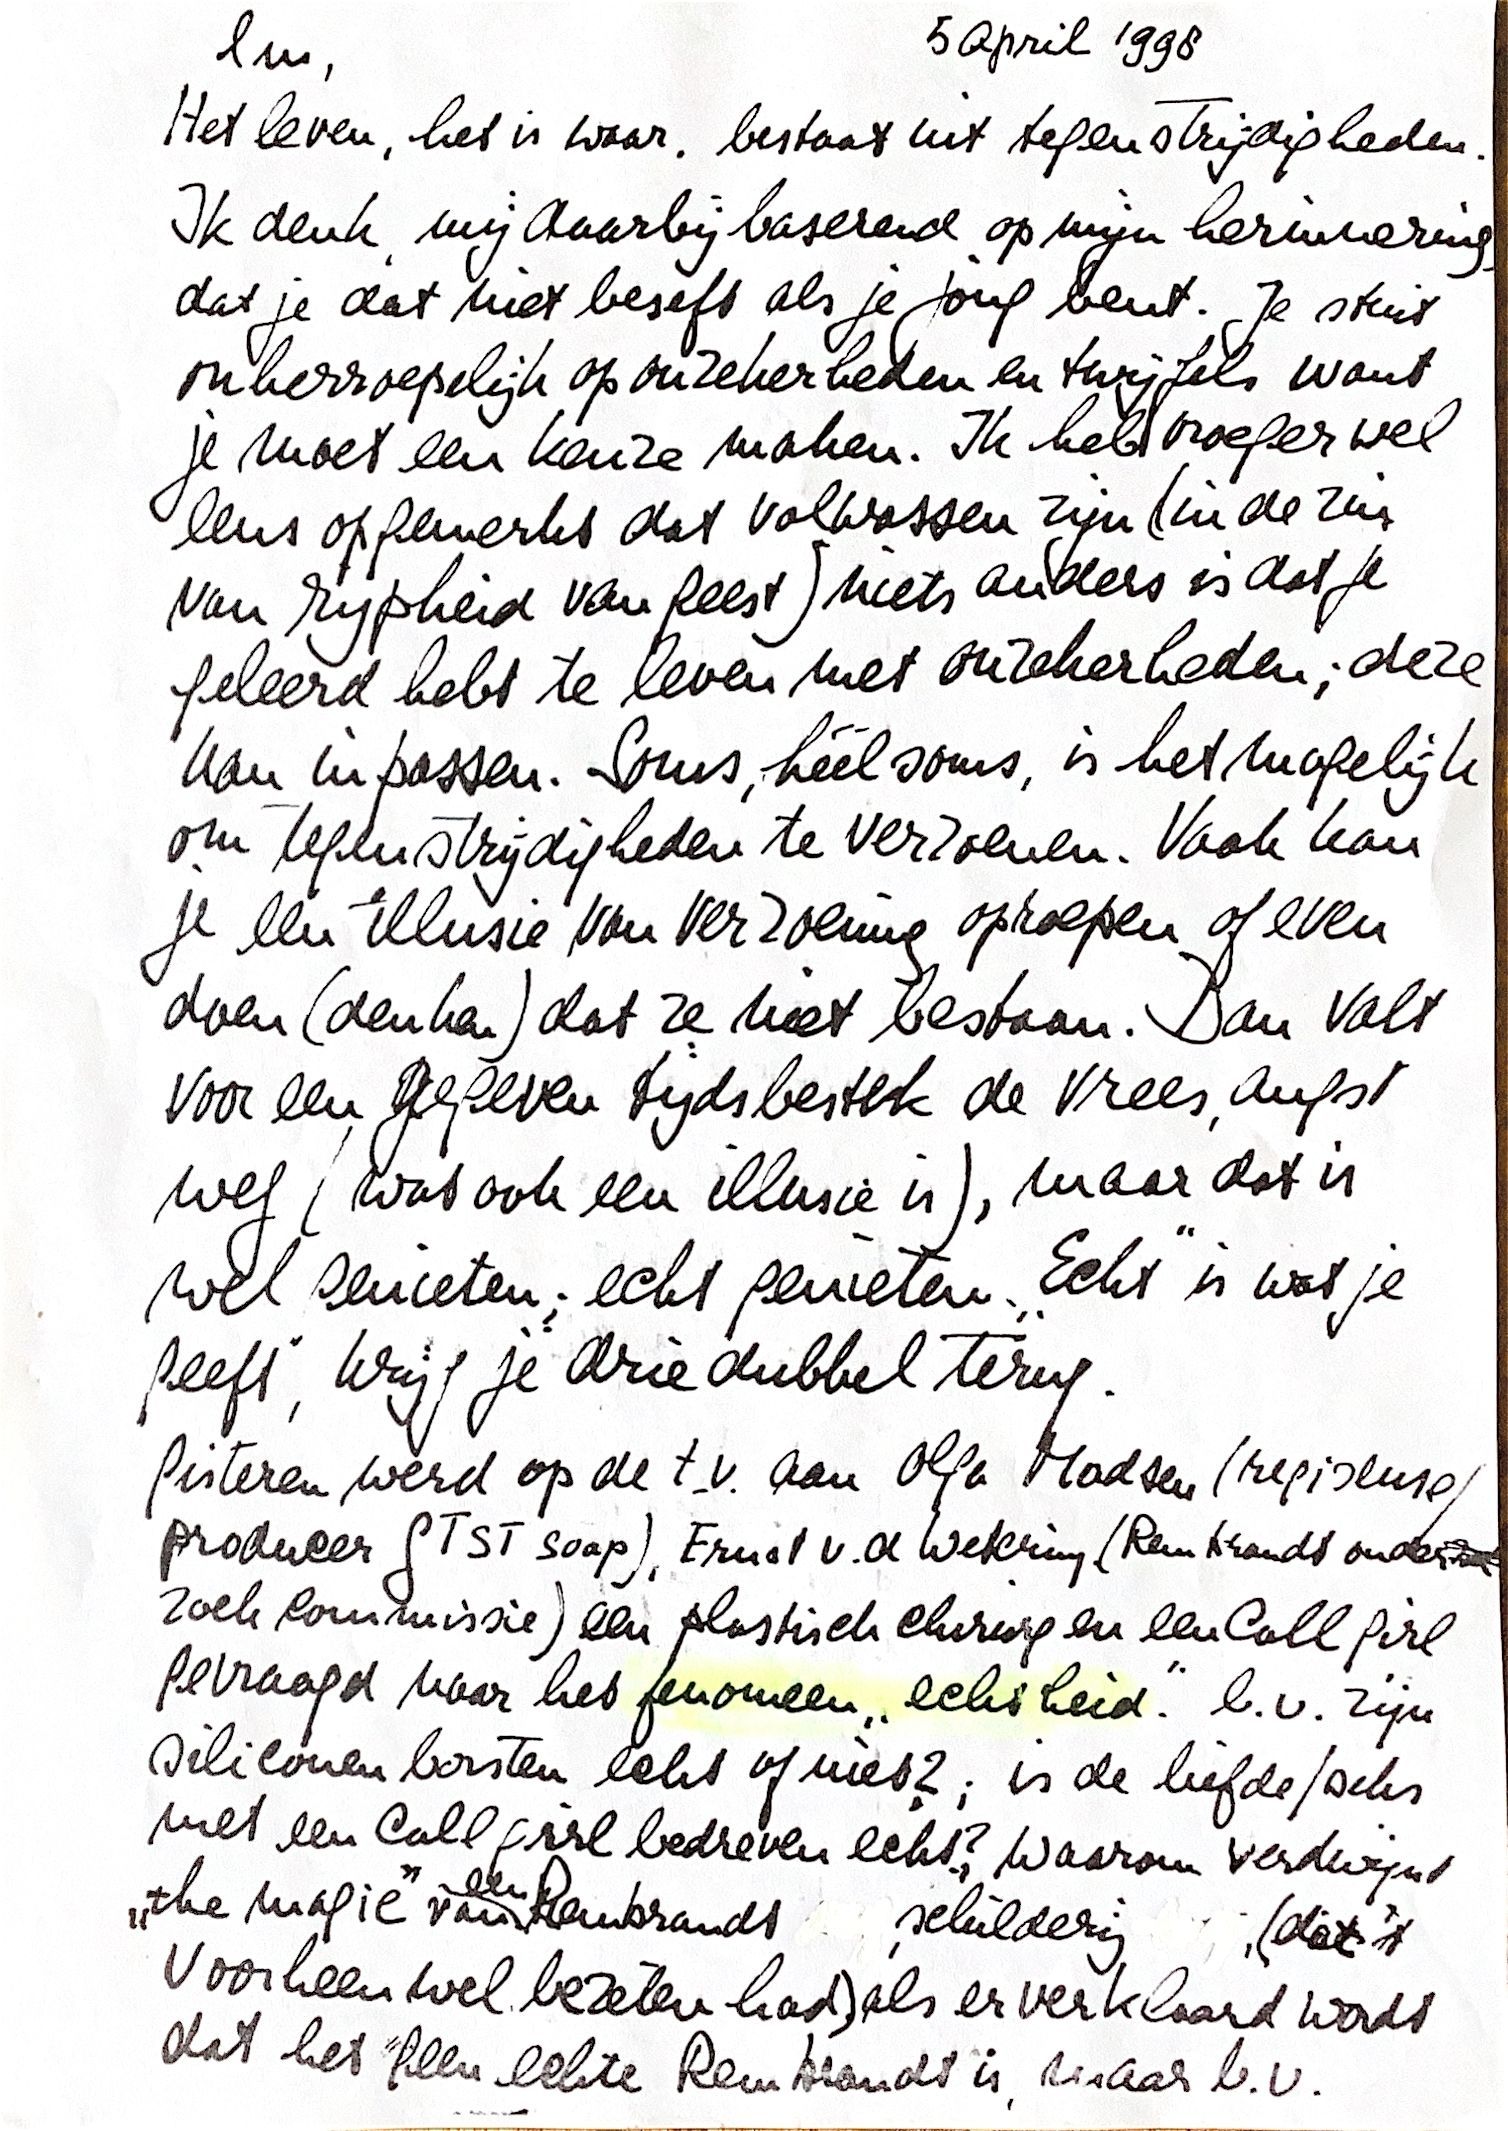 lm, 5 April 1998
Het leven, het is waar. bestaat uit tegenstrijdigheden.
Ik denk, mij daarbij baserend op mijn herinnering,
dat je dat niet beseft als je jong bent. Je stuit
onherroepelijk op onzekerheden en twijfels want
je moet een keuze maken. Ik heb vroeger wel
eens opgemerkt dat volwassen zijn (in de zin
van rijpheid van geest) niets anders is dat je
geleerd hebt te leven met onzekerheden; deze
kan inpassen. Soms, héél soms, is het mogelijk
om tegenstrijdigheden te verzoenen. Vaak kan
je een illusie van verzoening oproepen of even
doen (denken) dat ze niet bestaan. Dan valt
voor een gegeven tijdsbestek de vrees, angst
weg (wat ook een illusie is), maar dat is
wel genieten; echt genieten. „Echt" is wat je
geeft, krijg je driedubbel terug.
Gisteren werd op de t.v. aan Olga Madsen (regiseuse/
producer GTST soap), Ernst v.d Wetering (Rembrandt onder
zoek commissie) een plastisch chirurg en een Call girl
gevraagd naar het fenomeen „echtheid". b.v. zijn
siliconen borsten echt of niet?; is de liefde/seks
met een Call girl bedreven echt?; Waarom verdwijnt
„the magic" van een Rembrandt schilderij (dat 't
Voorheen wel bezeten had) als er verklaard wordt
dat het geen echte Rembrandt is, maar b.v.